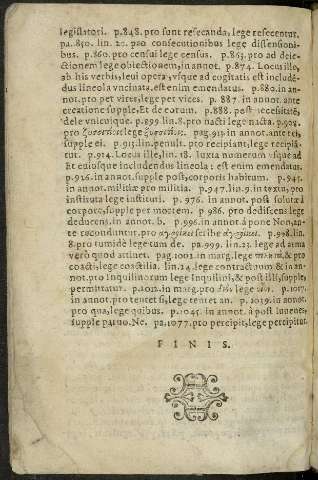 legislatori. p.848. pro sunt resecanda, lege resecentur.
pa.850. lin. 20. pro consecutionibus lege dissensioni-
bus. p.860. pro censui lege census. p.863. pro ad dele-
ctionem lege obiectionem, in annot. p.874. Locus illo,
ab his verbis, leui opera, vsque ad cogitatis est includē-
dus lineola vncinata. est enim emendatus. p.880. in an-
not. pro pet vires, lege per vices. p.887. in annot. ante
creatione supple, Et de eorum. p.888. post necessitiē,
dele vnicuique. p.899. lin.8. pro nacti lege nacta. p.908.
pro lege pag.913. in annot. ante rei,
supple ei. p.913. lin. penult. pro recipiant, lege recipiā-
tur. p.914. Locus ille, lin.18. iuxta numerum vsque ad
Et eiusque includendus lineola: est enim emendatus.
p.926. in annot. supple post, corporis habitum. p.945.
in annot. militiæ pro militia. p.947. lin.9. in textu, pro
instituta lege instituti. p.976. in annot. post soluta à
corpore, supple per mortem. p.986. pro dediscens lege
deducens. in annot. b. p.996. in annot. à pone Non an-
te reconduntur. pro scribe p.998. lin.
8. pro tumidè lege cum de. pa.999. lin.23. lege ad arma
verò quod attinet. pag 1002. in marg. lege & pro
coacti, lege coactilia. lin.14. lege contractuum & in an-
not. pro Inquilinorum lege Inquilini, & post illi, supple,
permittatur. p.1012. in marg. pro lege p.1017.
in annot. pro tentet si, lege tentet an. p.1019. in annot.
pro qua, lege quibus. p.1045. in annot. à post Iunenes,
supple paruo. Ne. pa.1077. pro percipit, lege percipitur.
F I N I S.